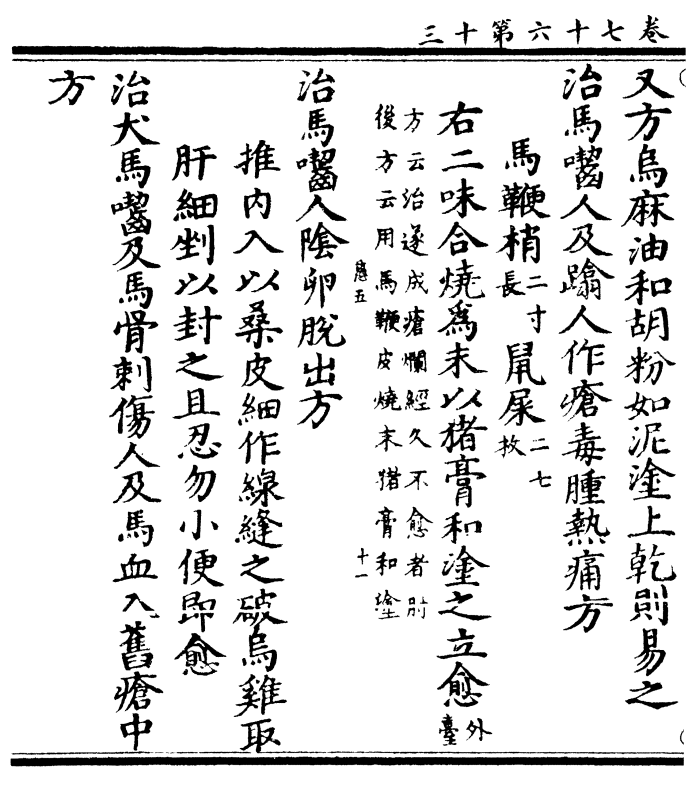 卷七十六第十三
又方烏麻油和胡粉如泥塗上乾則易之
治馬嚙人及蹹人作瘡毒腫熱痛方
馬鞭梢長二寸鼠屎二七枚
右二味合燒爲末以猪膏和塗之立愈外臺
方云治遂成瘡爛經久不愈者肘
後方云用馬鞭皮燒末猪膏和塗
應五 十一
治馬嚙人陰卵脫出方
推内入以桑皮細作線縫之破烏雞取
肝細剉以封之且忍勿小便即愈
治犬馬嚙及馬骨刺傷人及馬血入舊瘡中
方